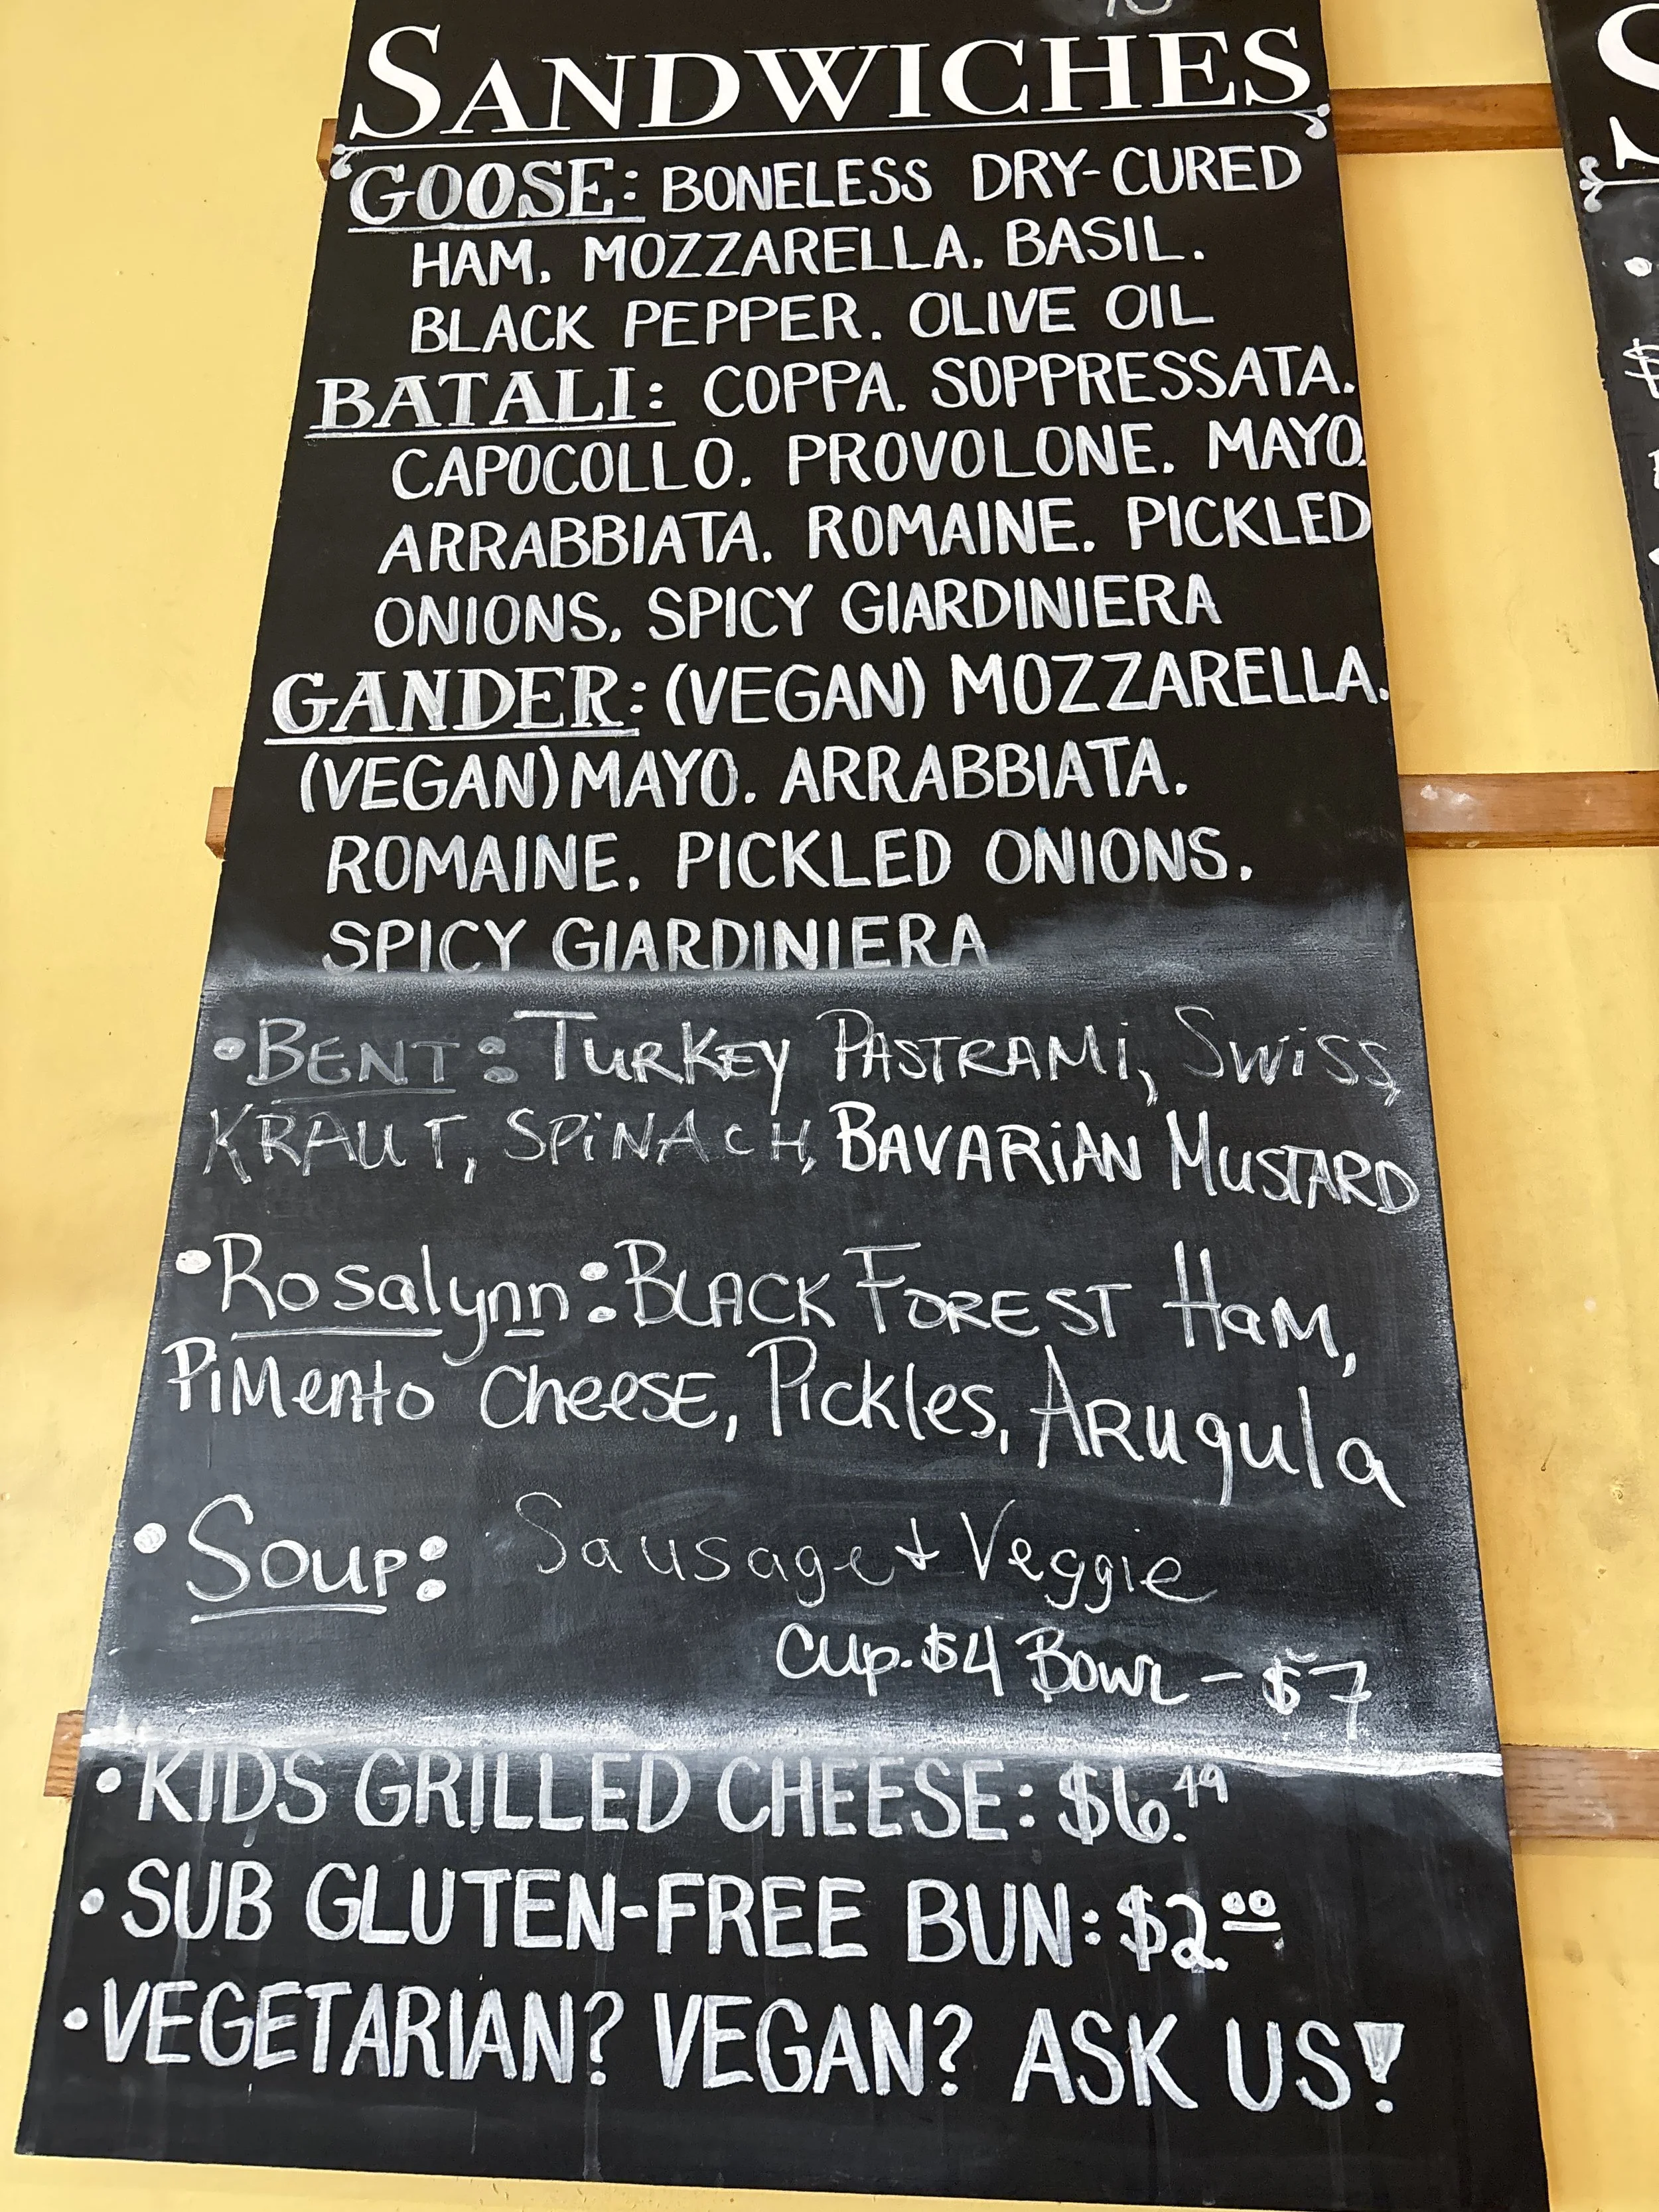 SANDWICHES
GOOSE: BONELESS DRY-CURED
HAM, MOZZARELLA, BASIL,
BLACK PEPPER, OLIVE OIL
BATALI: COPPA, SOPPRESSATA,
CAPOCOLLO, PROVOLONE, MAYO,
ARRABBIATA, ROMAINE, PICKLED
ONIONS, SPICY GIARDINIERA
GANDER: (VEGAN) MOZZARELLA,
(VEGAN) MAYO, ARRABBIATA,
ROMAINE, PICKLED ONIONS,
SPICY GIARDINIERA
•BENT: TURKEY PASTRAMi, SWiSS,
KRAUT, SPiNACH, BAVARiAN MUSTARD
•Rosalynn: BLACK FOREST HaM,
PiMento CheeSE, Pickles, ARugula
•Soup: Sausage + Veggie
Cup-$4 Bowl - $7
•KIDS GRILLED CHEESE: $6.49
•SUB GLUTEN-FREE BUN: $2.00
•VEGETARIAN? VEGAN? ASK US!